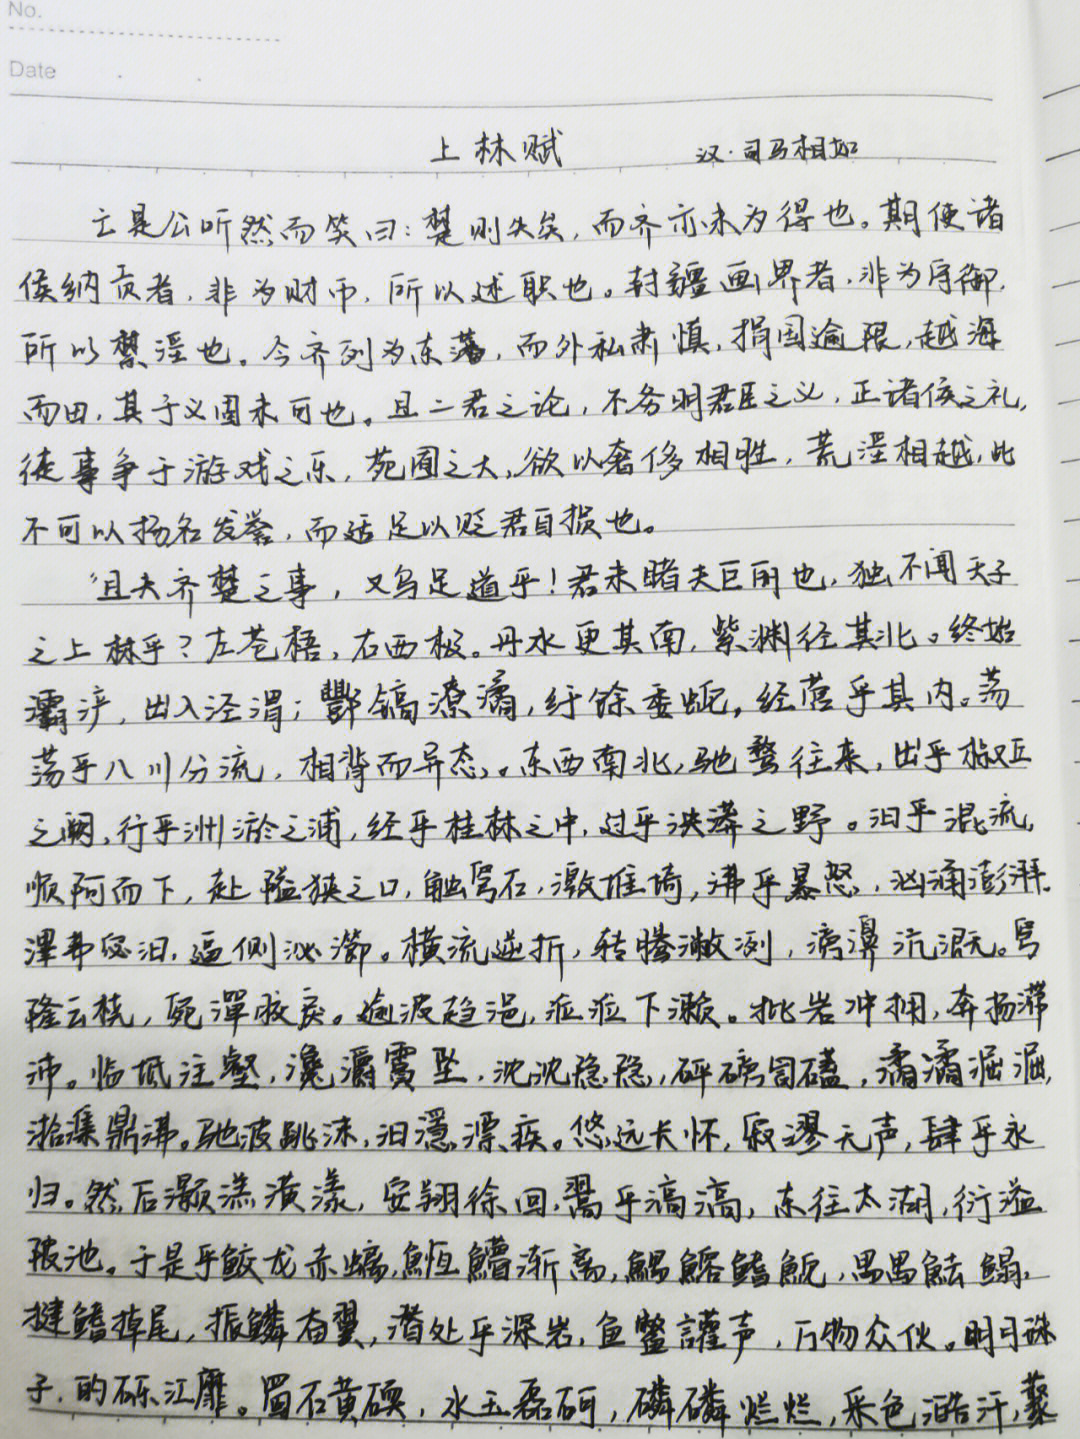 No.
Date
上林赋 汉·司马相如
亡是公听然而笑曰：楚则失矣，而齐亦未为得也。期使诸
侯纳贡者，非为财币，所以述职也。封疆画界者，非为守御，
所以禁淫也。今齐列为东藩，而外私肃慎，捐国逾限，越海
而田，其于义固未可也。且二君之论，不务明君臣之义，正诸侯之礼，
徒事争于游戏之乐，苑囿之大，欲以奢侈相胜，荒淫相越，此
不可以扬名发誉，而适足以贬君自损也。
“且夫齐楚之事，又乌足道乎！君未睹夫巨丽也，独不闻天子
之上林乎？左苍梧，右西极。丹水更其南，紫渊径其北。终始
灞浐，出入泾渭；酆镐潦潏，纡馀委蛇，经营乎其内。荡
荡乎八川分流，相背而异态，。东西南北，驰骛往来，出乎椒丘
之阙，行乎洲淤之浦，经乎桂林之中，过乎泱漭之野。汩乎混流，
顺阿而下，赴隘狭之口，触穹石，激堆埼，沸乎暴怒，汹涌澎湃。
滭弗宓汩，逼侧泌瀄。横流逆折，转腾潎洌，滂濞沆溉。穹
隆云桡，宛潬胶戾。逾波趋浥，莅莅下濑。批岩冲拥，奔扬滞
沛。临坻注壑，瀺灂霣坠，沈沈隐隐，砰磅訇礚，潏潏淈淈，
湁潗鼎沸。驰波跳沫，汩㴔漂疾。悠远长怀，寂漻无声，肆乎永
归。然后灏溔潢漾，安翔徐回，翯乎滈滈，东注太湖，衍溢
陂池。于是乎鲛龙赤螭，䱍䲛渐离，鰅鰫鳍鮀，禺禺魼鳎，
揵鳍掉尾，振鳞奋翼，潜处乎深岩，鱼鳖讙声，万物众伙。明月珠
子，的皪江靡。蜀石黄碝，水玉磊砢，磷磷烂烂，采色澔汗，藂